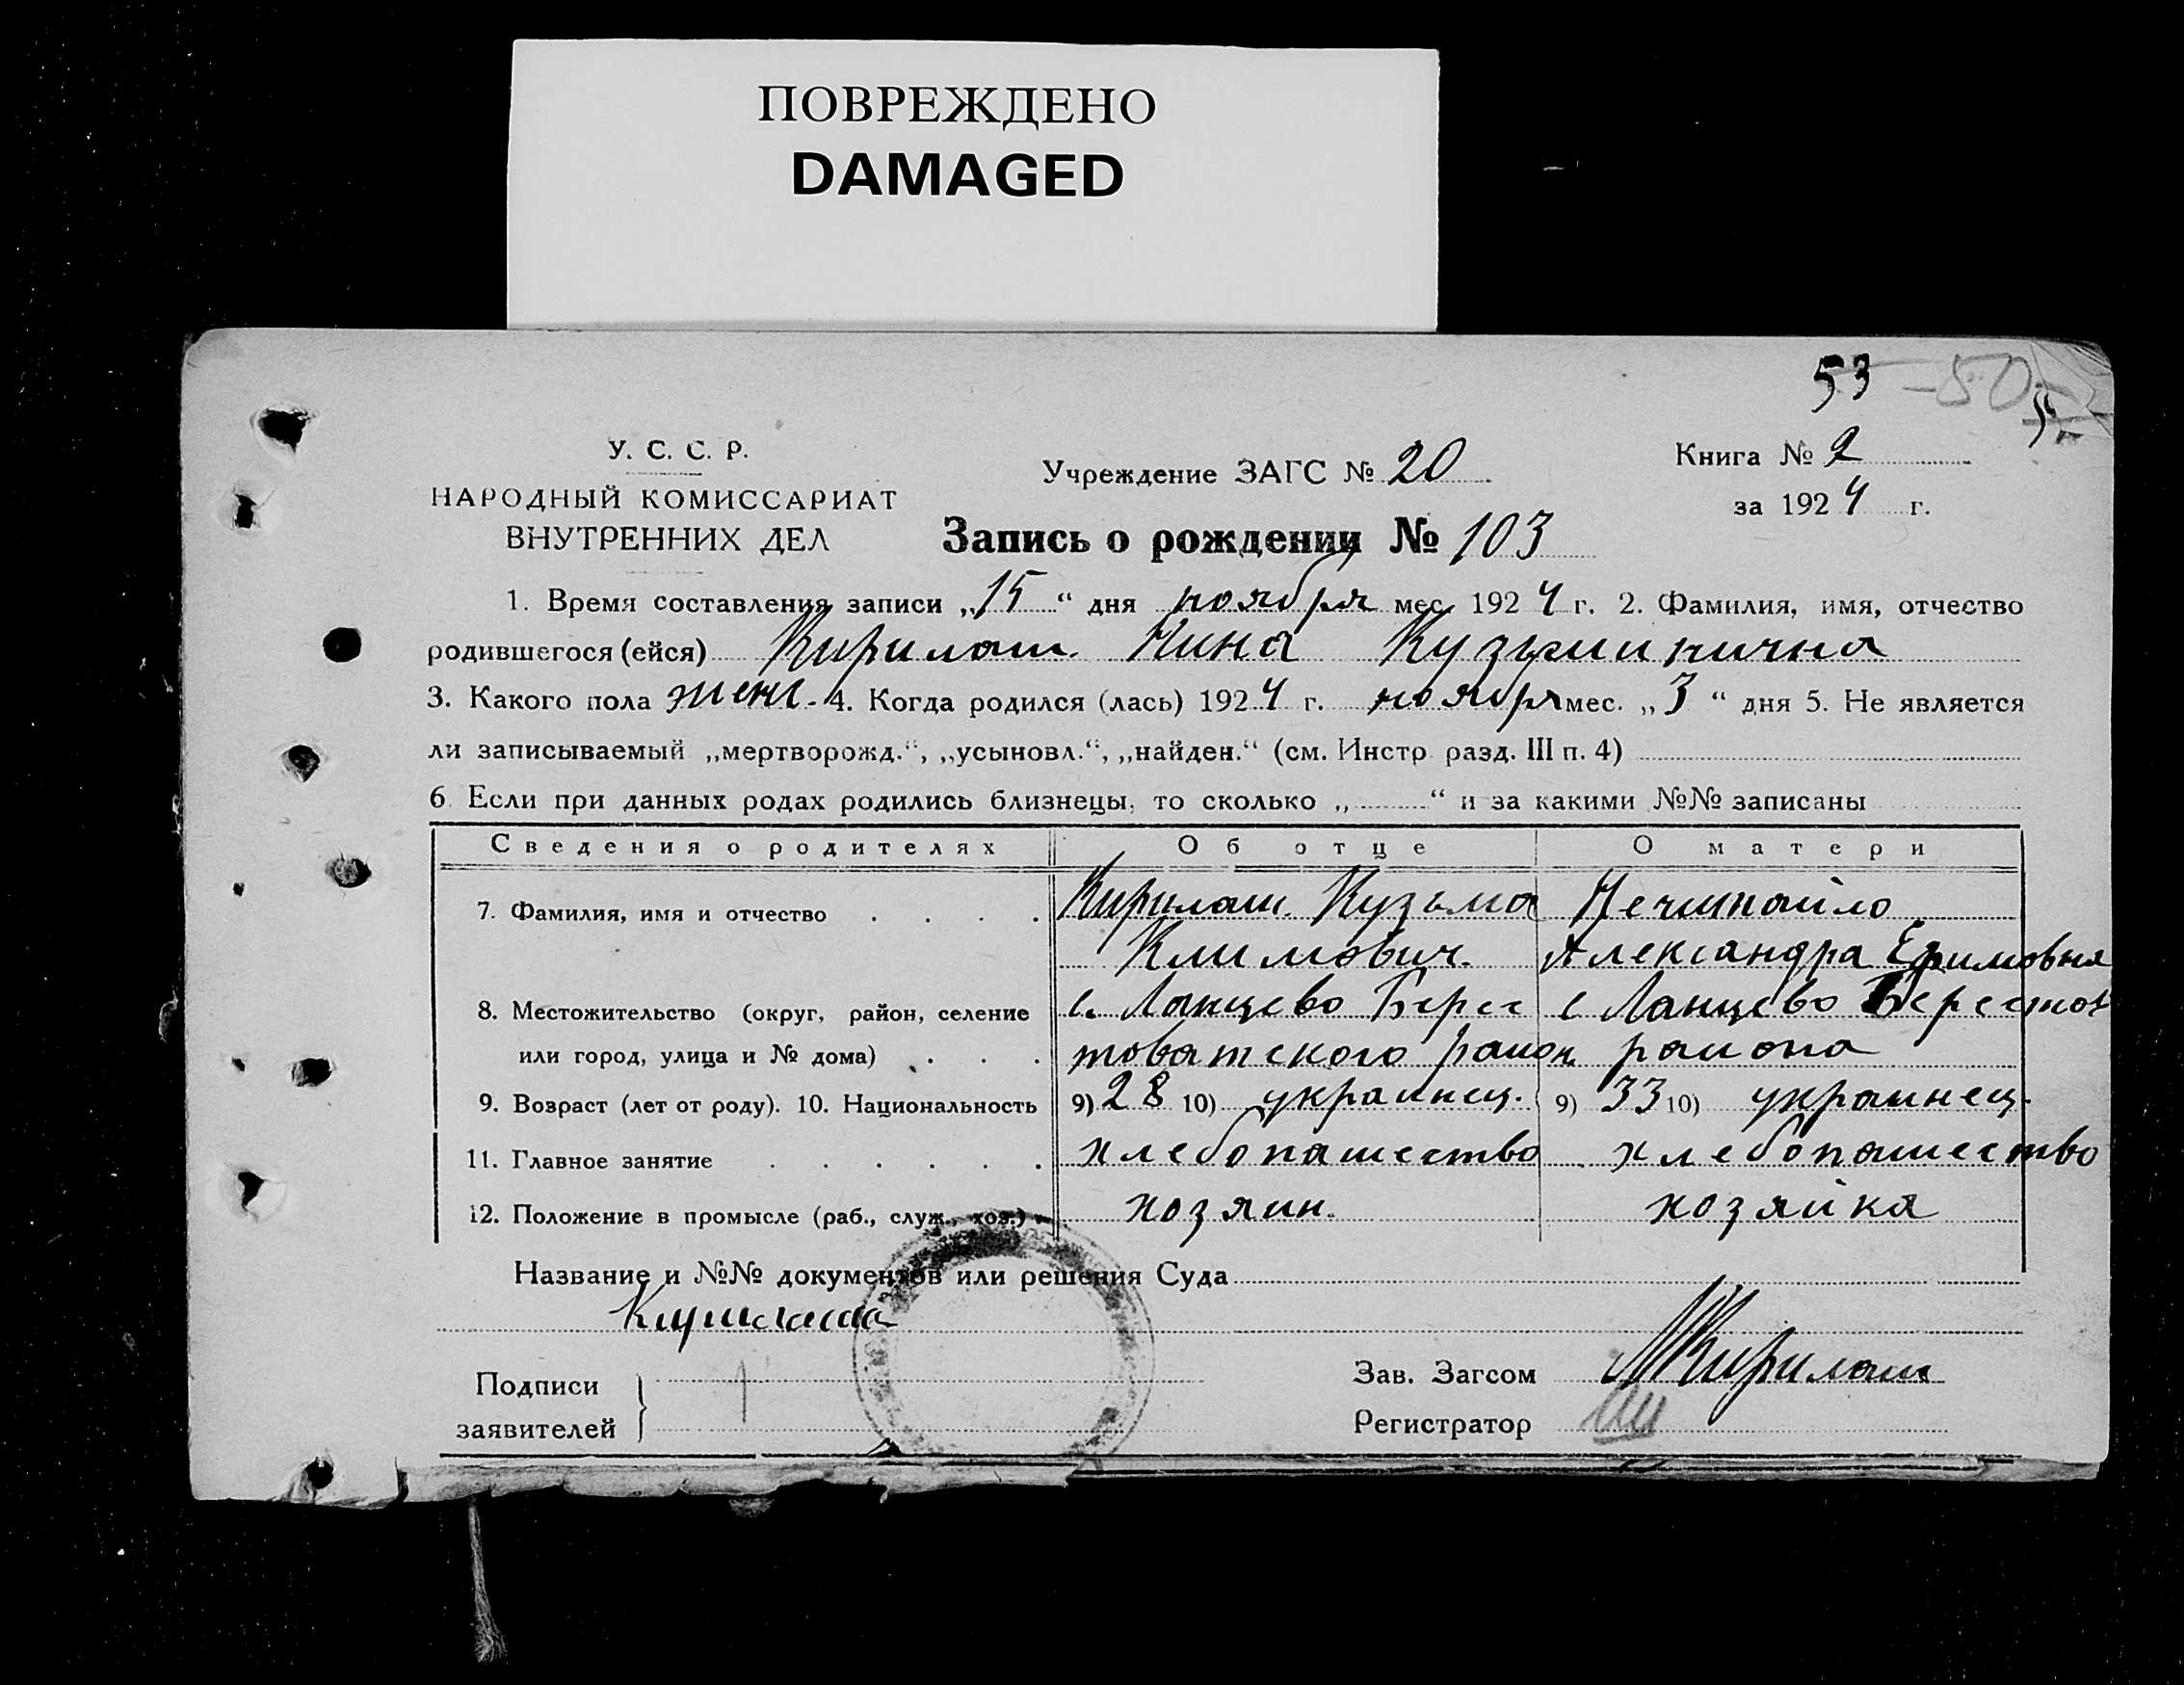 ПОВРЕЖДЕНО
DAMAGED
53 50
У. С. С. Р.
НАРОДНЫЙ КОМИССАРИАТ
ВНУТРЕННИХ ДЕЛ
Учреждение ЗАГС № 20
Книга № 2
за 1924 г.
Запись о рождении № 103
1. Время составления записи „15“ дня ноября мес. 1924 г. 2. Фамилия, имя, отчество
родившегося (ейся) Кирилаш Нина Кузьминична
3. Какого пола жен. 4. Когда родился (лась) 1924 г. ноября мес. „3“ дня 5. Не является
ли записываемый „мертворожд.“, „усыновл.“, „найден.“ (см. Инстр. разд. III п. 4)
6. Если при данных родах родились близнецы, то сколько „ “ и за какими №№ записаны
Сведения о родителях Об отце О матери
7. Фамилия, имя и отчество . . . . Кирилаш Кузьма Нечипайло
Климович. Александра Ефимовна
8. Местожительство (округ, район, селение с. Ланцево Берес с Ланцево Берестов
или город, улица и № дома) . . . товатского район. района
9. Возраст (лет от роду). 10. Национальность 9) 28 10) украинец. 9) 33 10) украинец.
11. Главное занятие . . . . . . хлебопашество хлебопашество
12. Положение в промысле (раб., служ., хоз.) хозяин. хозяйка
Название и №№ документов или решения Суда
Кирилаш
Подписи
заявителей
Зав. Загсом Кирилаш
Регистратор